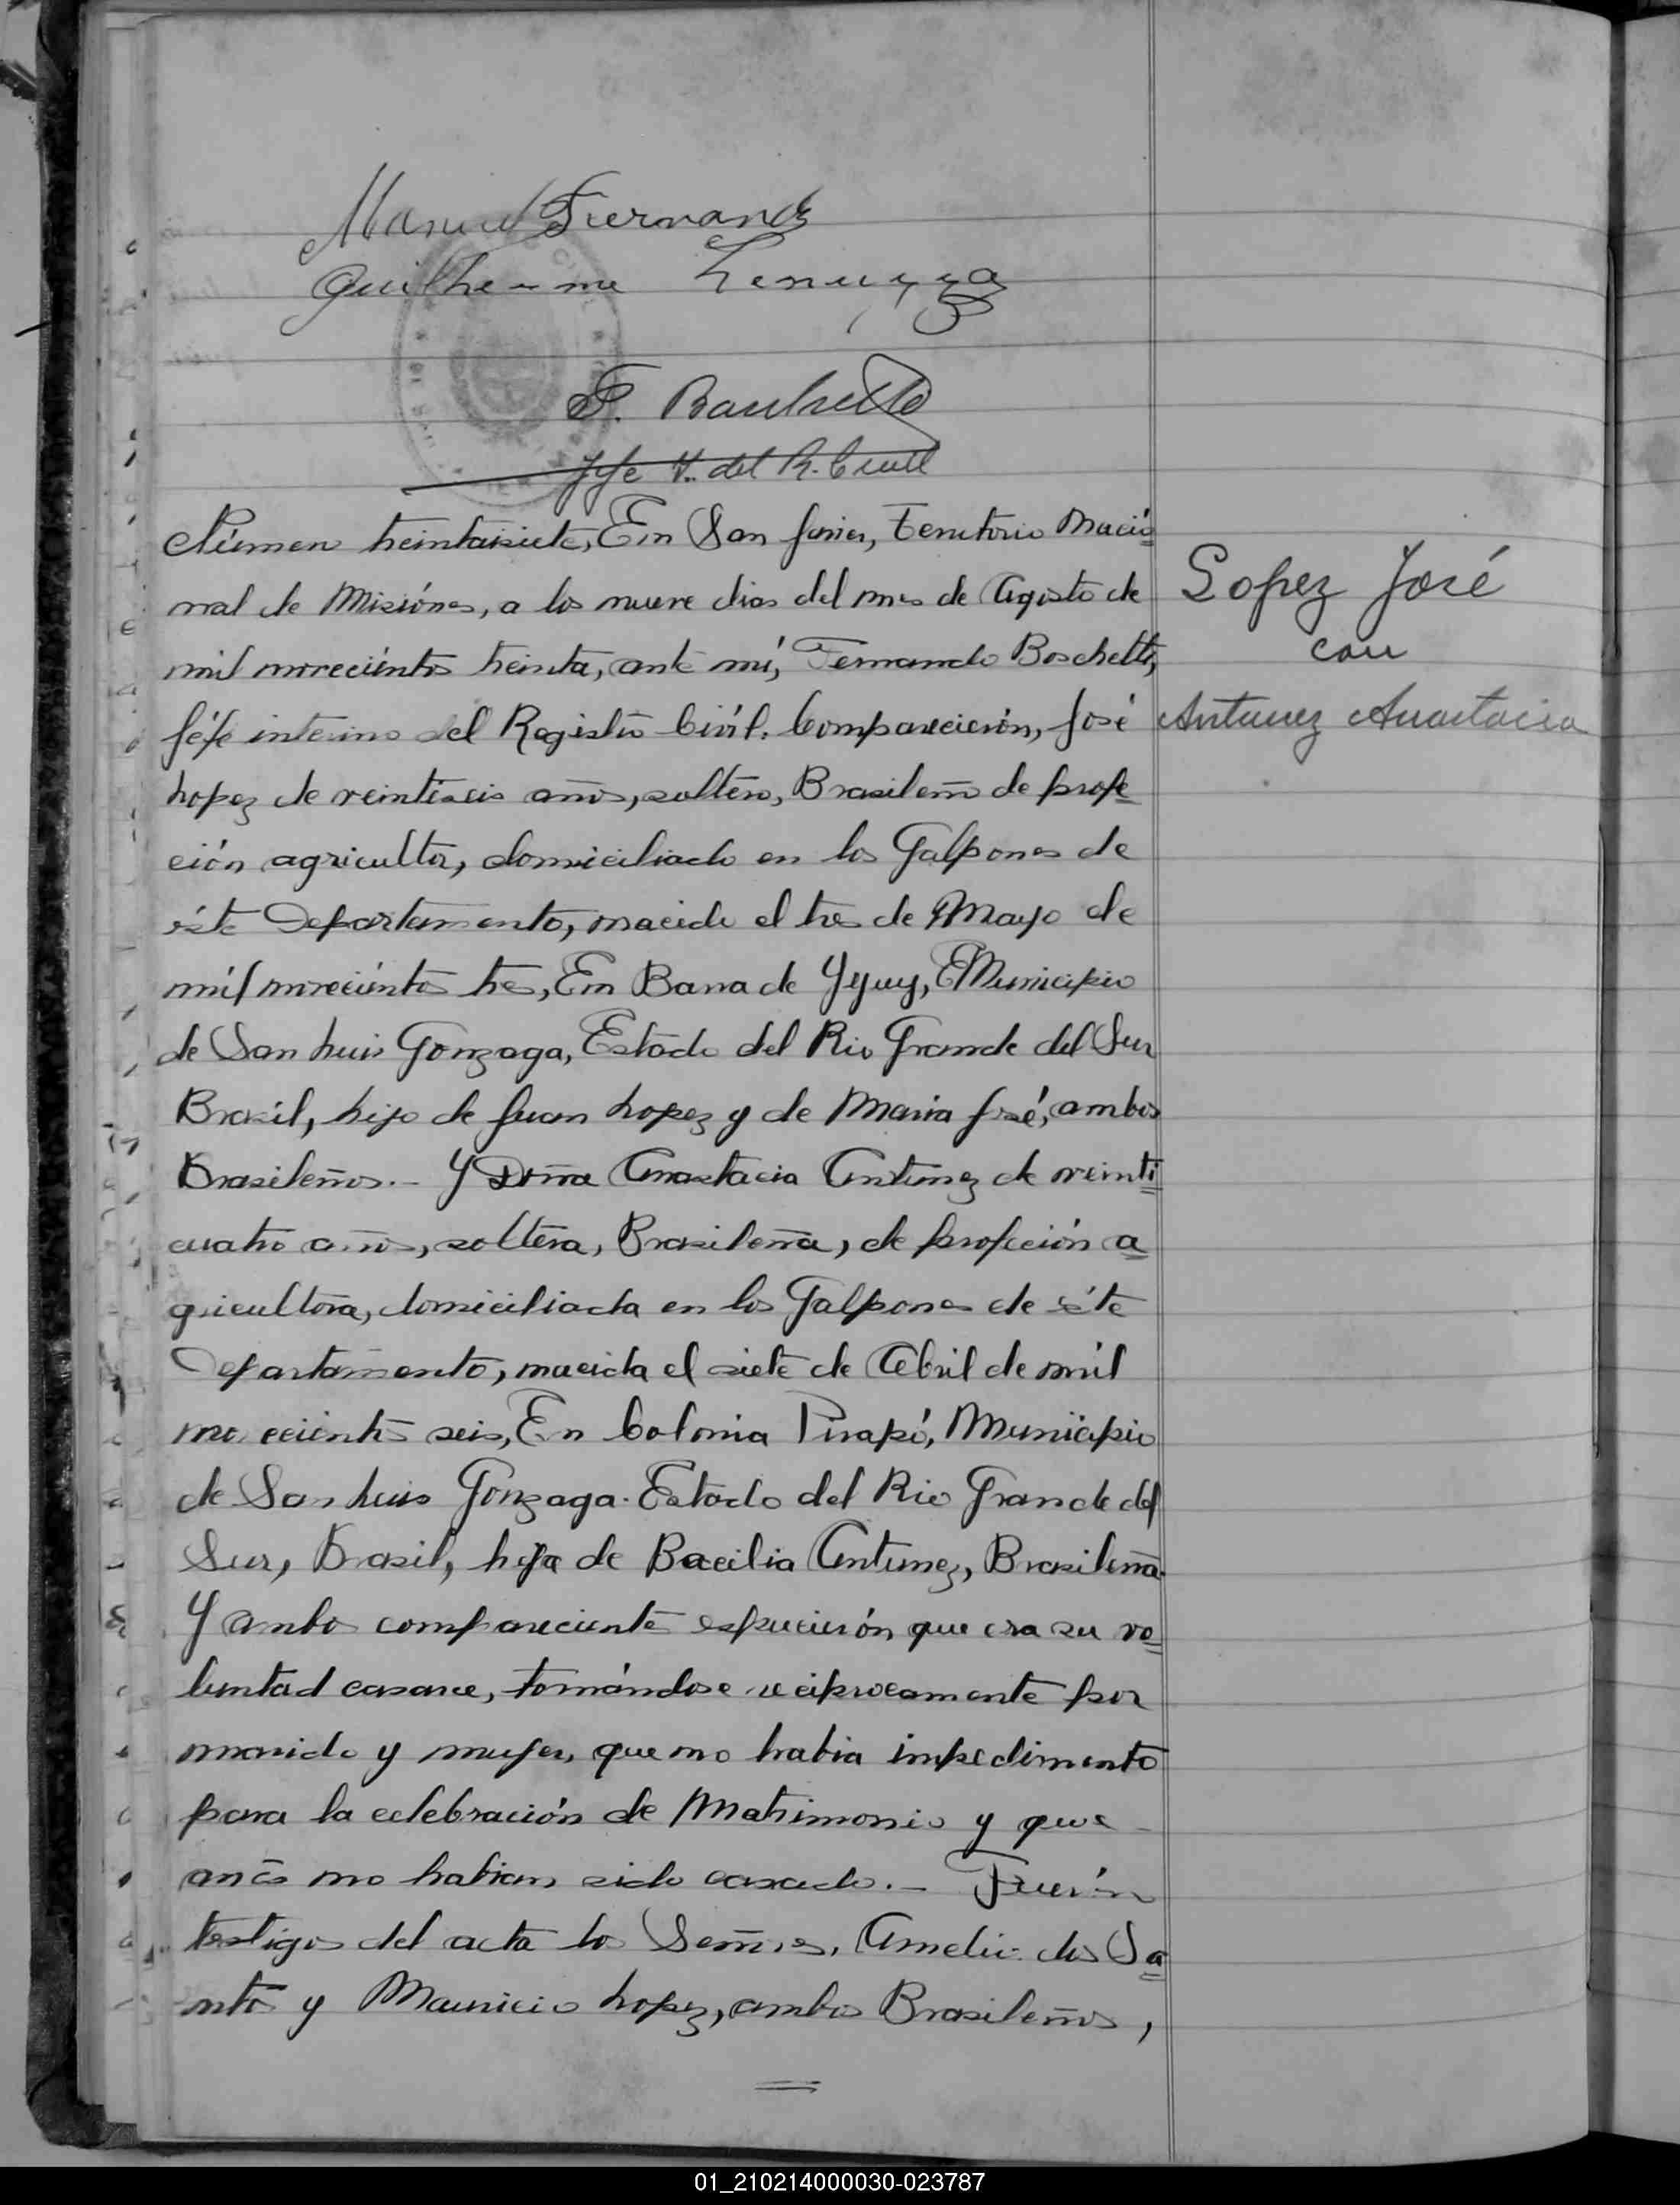 Manuel Fernandz
Guilherme
F. Boschetto
Jefe I. del R. Civil
Número treintaisiete, En San Javier, Territorio Nació
nal de Misiónes, a los nueve dias del mes de Agosto de
mil noveciéntos treinta, ante mí, Fernando Boschetto,
Jéfe interino del Registro Civíl. Compareciéron, José
Lopez de veintiseis años, soltero, Brasileño de profe
ción agricultor, domiciliado en los Galpones de
éste Departamento, nacido el tres de Mayo de
mil noveciéntos tres, En Barra de Yyuy, Municipio
de San Luis Gonzaga, Estado del Rio Grande del Sur
Brasil, hijo de Juan Lopez y de Maria José, ambos
Brasileños.- Y Doña Anastacia Antunez de veinti
cuatro años, soltera, Brasileña, de profeción a
gricultora, domiciliada en los Galpones de éste
Departamento, nacida el siete de Abril de mil
novecientos seis, En Colonia Pirapó, Municipio
de San Luis Gonzaga. Estado del Rio Grande del
Sur, Brasil, hija de Bacilia Antunez, Brasileña.
Y ambos compareciente espreciérón que era su vo
luntad casarce, tomándose reciprocamente por
marido y mujer, que no habia impedimento
para la celebración de Matrimonio y que
antes no habian sido casado.- Fuerón
testigos del acta los Señores, Amelio dos Sa
ntos y Mauricio Lopez, ambos Brasileños,
Lopez José
con
Antunez Anastacia
01_210214000030-023787